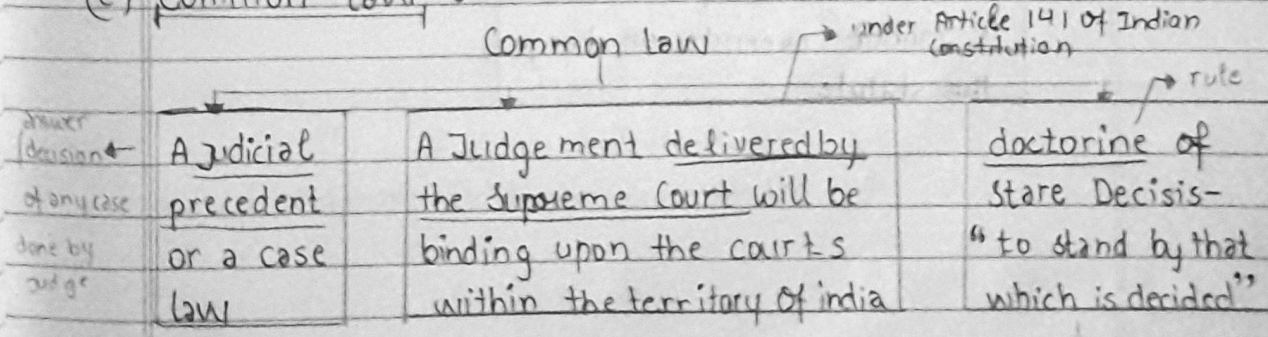 (c) Common law
Common law
under Article 141 of Indian
constitution
rule
answer
decision
of any case
done by
judge
A Judicial
precedent
or a case
law
A Judgement delivered by
the Supreme Court will be
binding upon the courts
within the territory of india
doctorine of
Stare Decisis-
"to stand by that
which is decided"